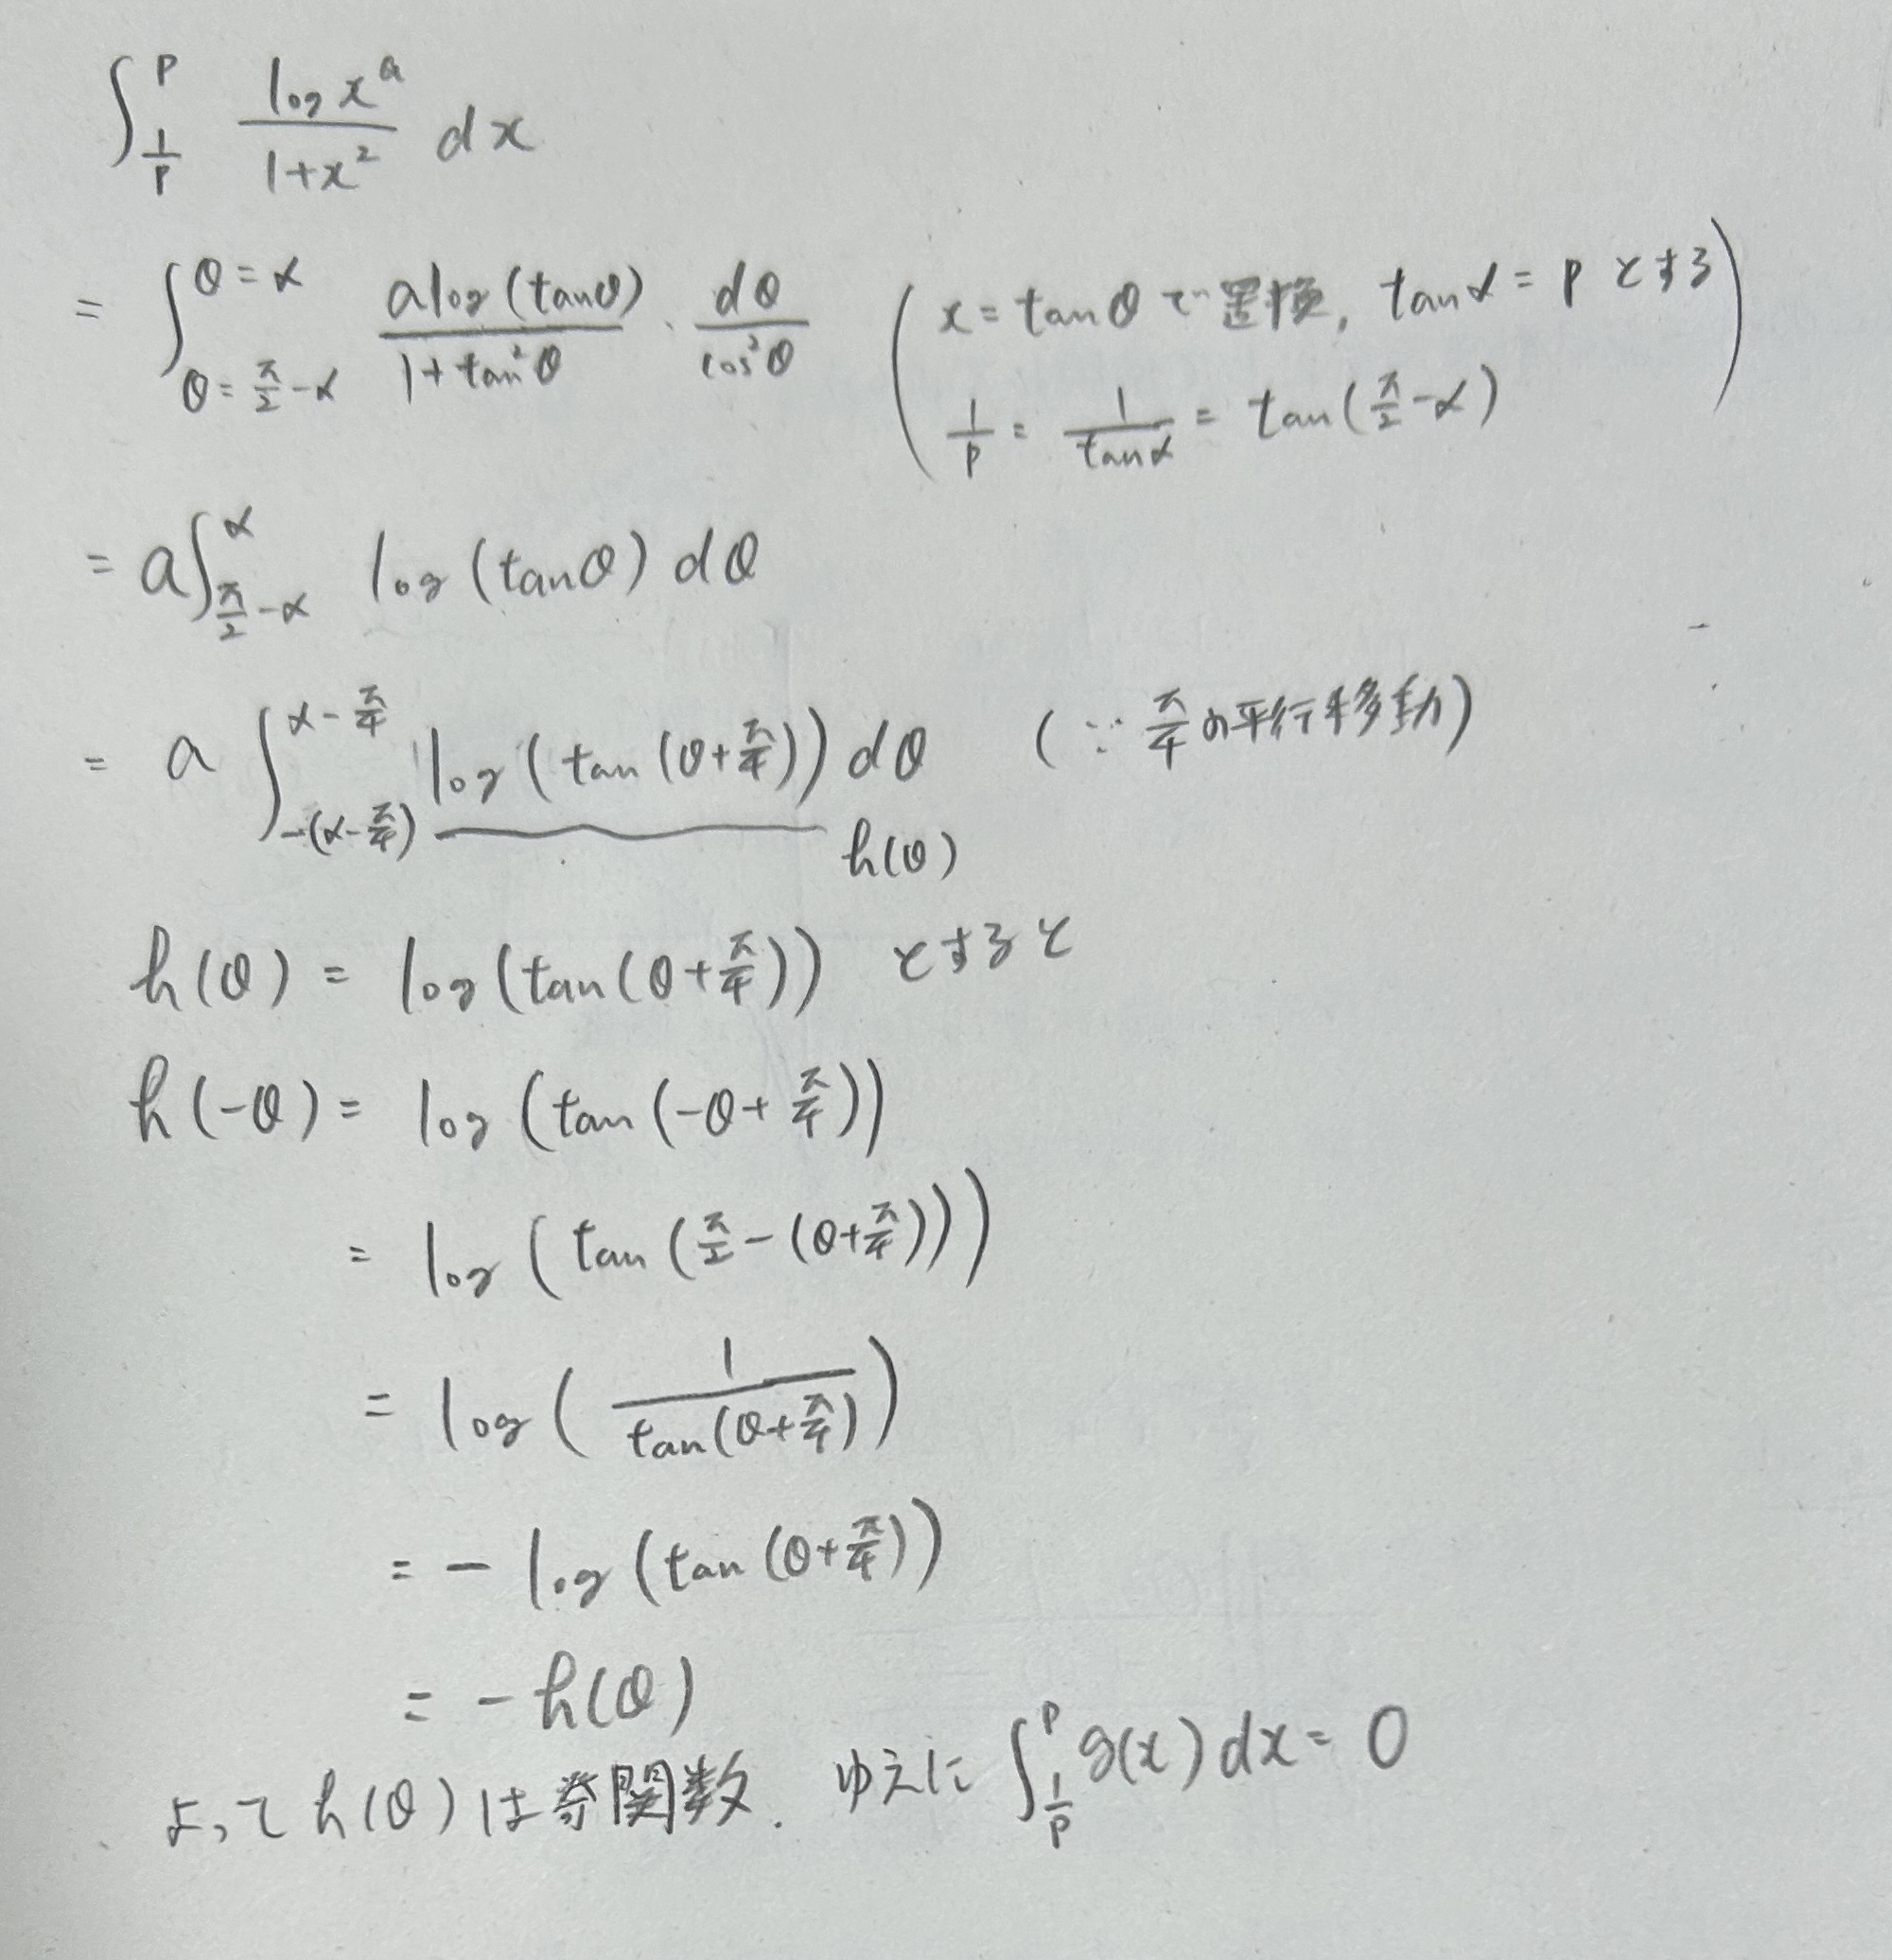 ∫_{1/p}^{p} (log x^a)/(1+x²) dx
= ∫_{θ=π/2-α}^{θ=α} (a log(tanθ))/(1+tan²θ) · dθ/cos²θ (x = tanθ で置換, tanα = p とする
1/p = 1/tanα = tan(π/2-α))
= a∫_{π/2-α}^{α} log(tanθ) dθ
= a ∫_{-(α-π/4)}^{α-π/4} log(tan(θ+π/4)) dθ (∵ π/4 の平行移動)
h(θ)
h(θ) = log(tan(θ+π/4)) とすると
h(-θ) = log(tan(-θ+π/4))
= log(tan(π/2-(θ+π/4)))
= log(1/tan(θ+π/4))
= - log(tan(θ+π/4))
= - h(θ)
よって h(θ) は奇関数. ゆえに ∫_{1/p}^{p} g(x) dx = 0